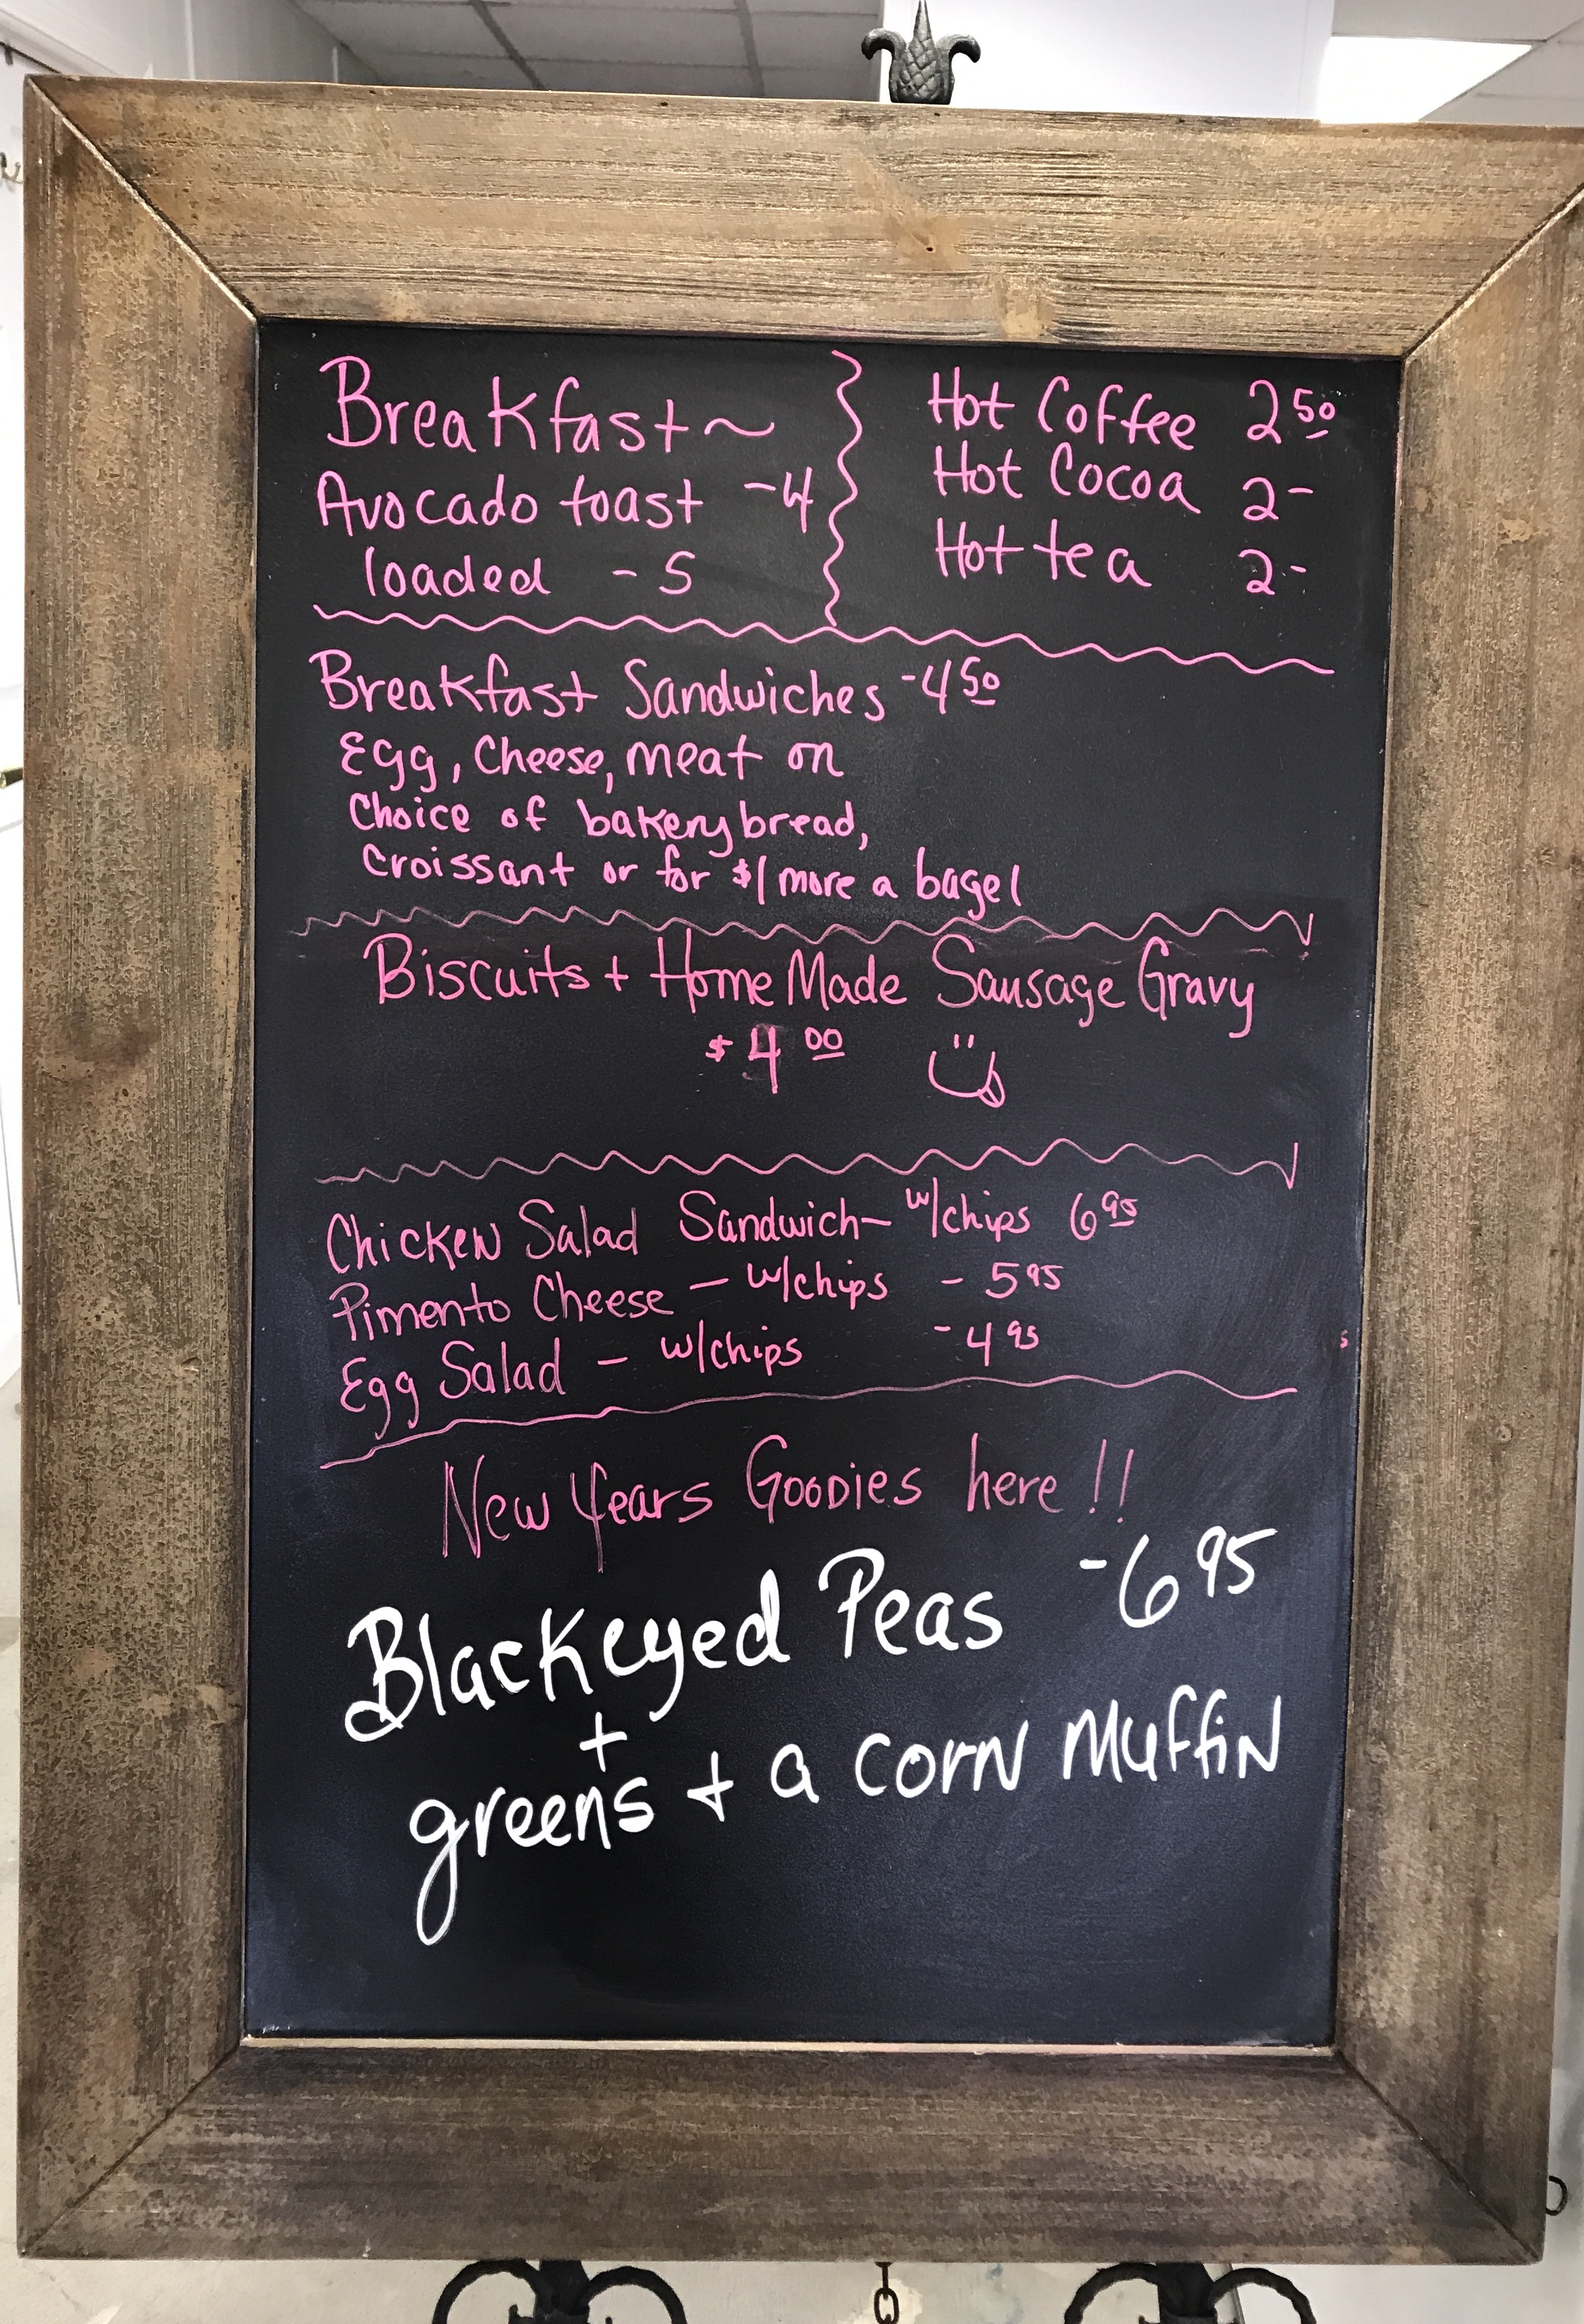 Breakfast~
Avocado toast -4
loaded - 5
Hot Coffee 2 50
Hot Cocoa 2-
Hot tea 2-
Breakfast Sandwiches -4 50
Egg, Cheese, meat on
Choice of bakery bread,
Croissant or for $1 more a bagel
Biscuits + Home Made Sausage Gravy
$4 00
Chicken Salad Sandwich- w/chips 6 95
Pimento Cheese - w/chips - 5 95
Egg Salad - w/chips - 4 95
New Years Goodies here !!
Blackeyed Peas -6 95
+
greens + a corn Muffin